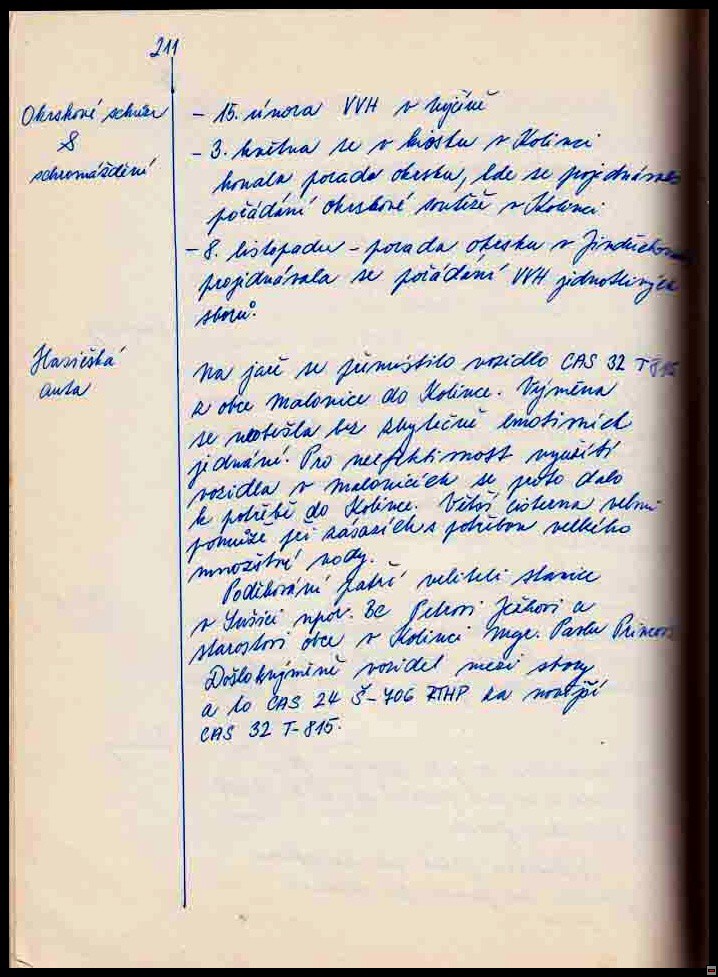 211
Okrskové schůze
&
schromáždění
- 15. února VVH v
- 3. května se v kiosku v Kolinci
konala porada okrsku, kde se projednávalo
pořádání okrskové soutěže v Kolinci
- 8. listopadu - porada okrsku v
projidnávala se pořádání VVH jednotlivých
sborů.
Hasičská
auta
Na jaře se přemístilo vozidlo CAS 32 T 815
z obce Malonice do Kolince. Výměna
se neobešla bez zbytečně emotivních
jednání. Pro neefektivnost využití
vozidla v Malonicích se proto dalo
k potřebě do Kolince. Větší cisterna velmi
pomůže při zásazích s potřebou velkého
množství vody.
Poděkování patří veliteli stanice
v Sušici npor. Bc Petrovi a
starostovi obce v Kolinci Inge. Pavlu
Došlo k výměně vozidel mezi sbory
a to CAS 24 Š-706 RTHP za novější
CAS 32 T-815.